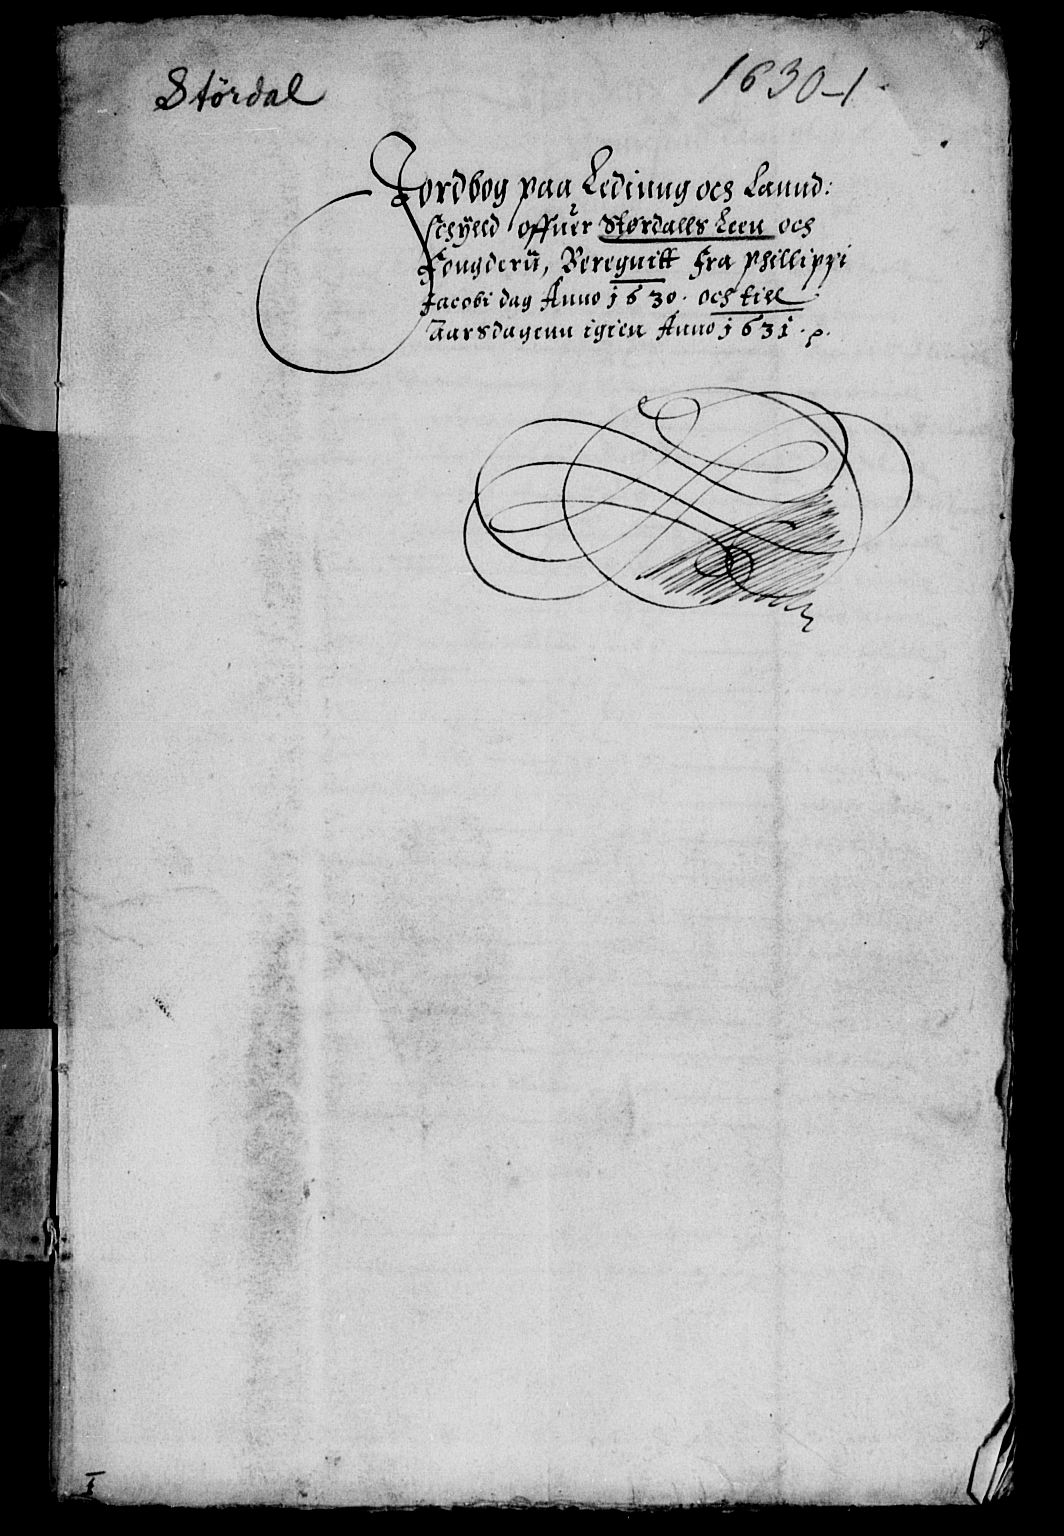 Stördal
1630-1
Jordbog paa Ledinng och Lannd:
schylld offuer Stordalls Leen och
Fougderij, Beregnitt Fra Phillippi
Jacobi dag Anno 1630. och till
Aarsdagenn igien Anno 1631. p.